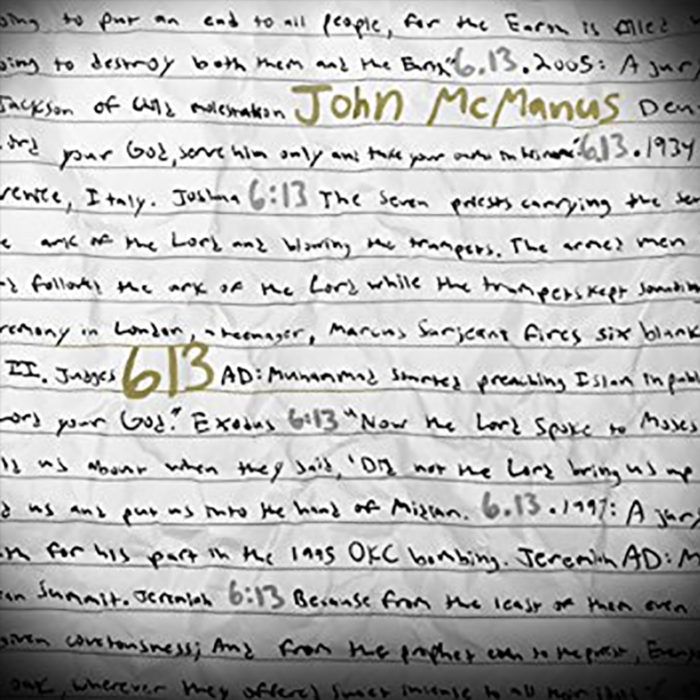 oing to put an end to all people, for the Earth is filled
oing to destroy both them and the Earth" 6.13.2005: A jur
Jackson of child molestation John McManus Deu
ord your God, serve him only and take your oaths in his name" 6.13.1934
venice, Italy. Joshua 6:13 The seven priests carrying the se
e ark of the Lord and blowing the trumpets. The armed men
d followed the ark of the Lord while the trumpets kept soundin
remony in London, a teenager, Marcus Sarjeant fires six blank
II. Judges 613 AD: Muhammad started preaching Islam in publ
Lord your God." Exodus 6:13 "Now the Lord spoke to Moses
ld us about when they said, 'Did not the Lord bring us up
d us and put us into the hand of Midian. 6.13.1997: A jur
th for his part in the 1995 OKC bombing. Jeremiah AD: M
an Summit. Jeremiah 6:13 Because from the least of them even
given covetousness; And from the prophet even to the priest, Every
oak, wherever they offered sweet incense to all